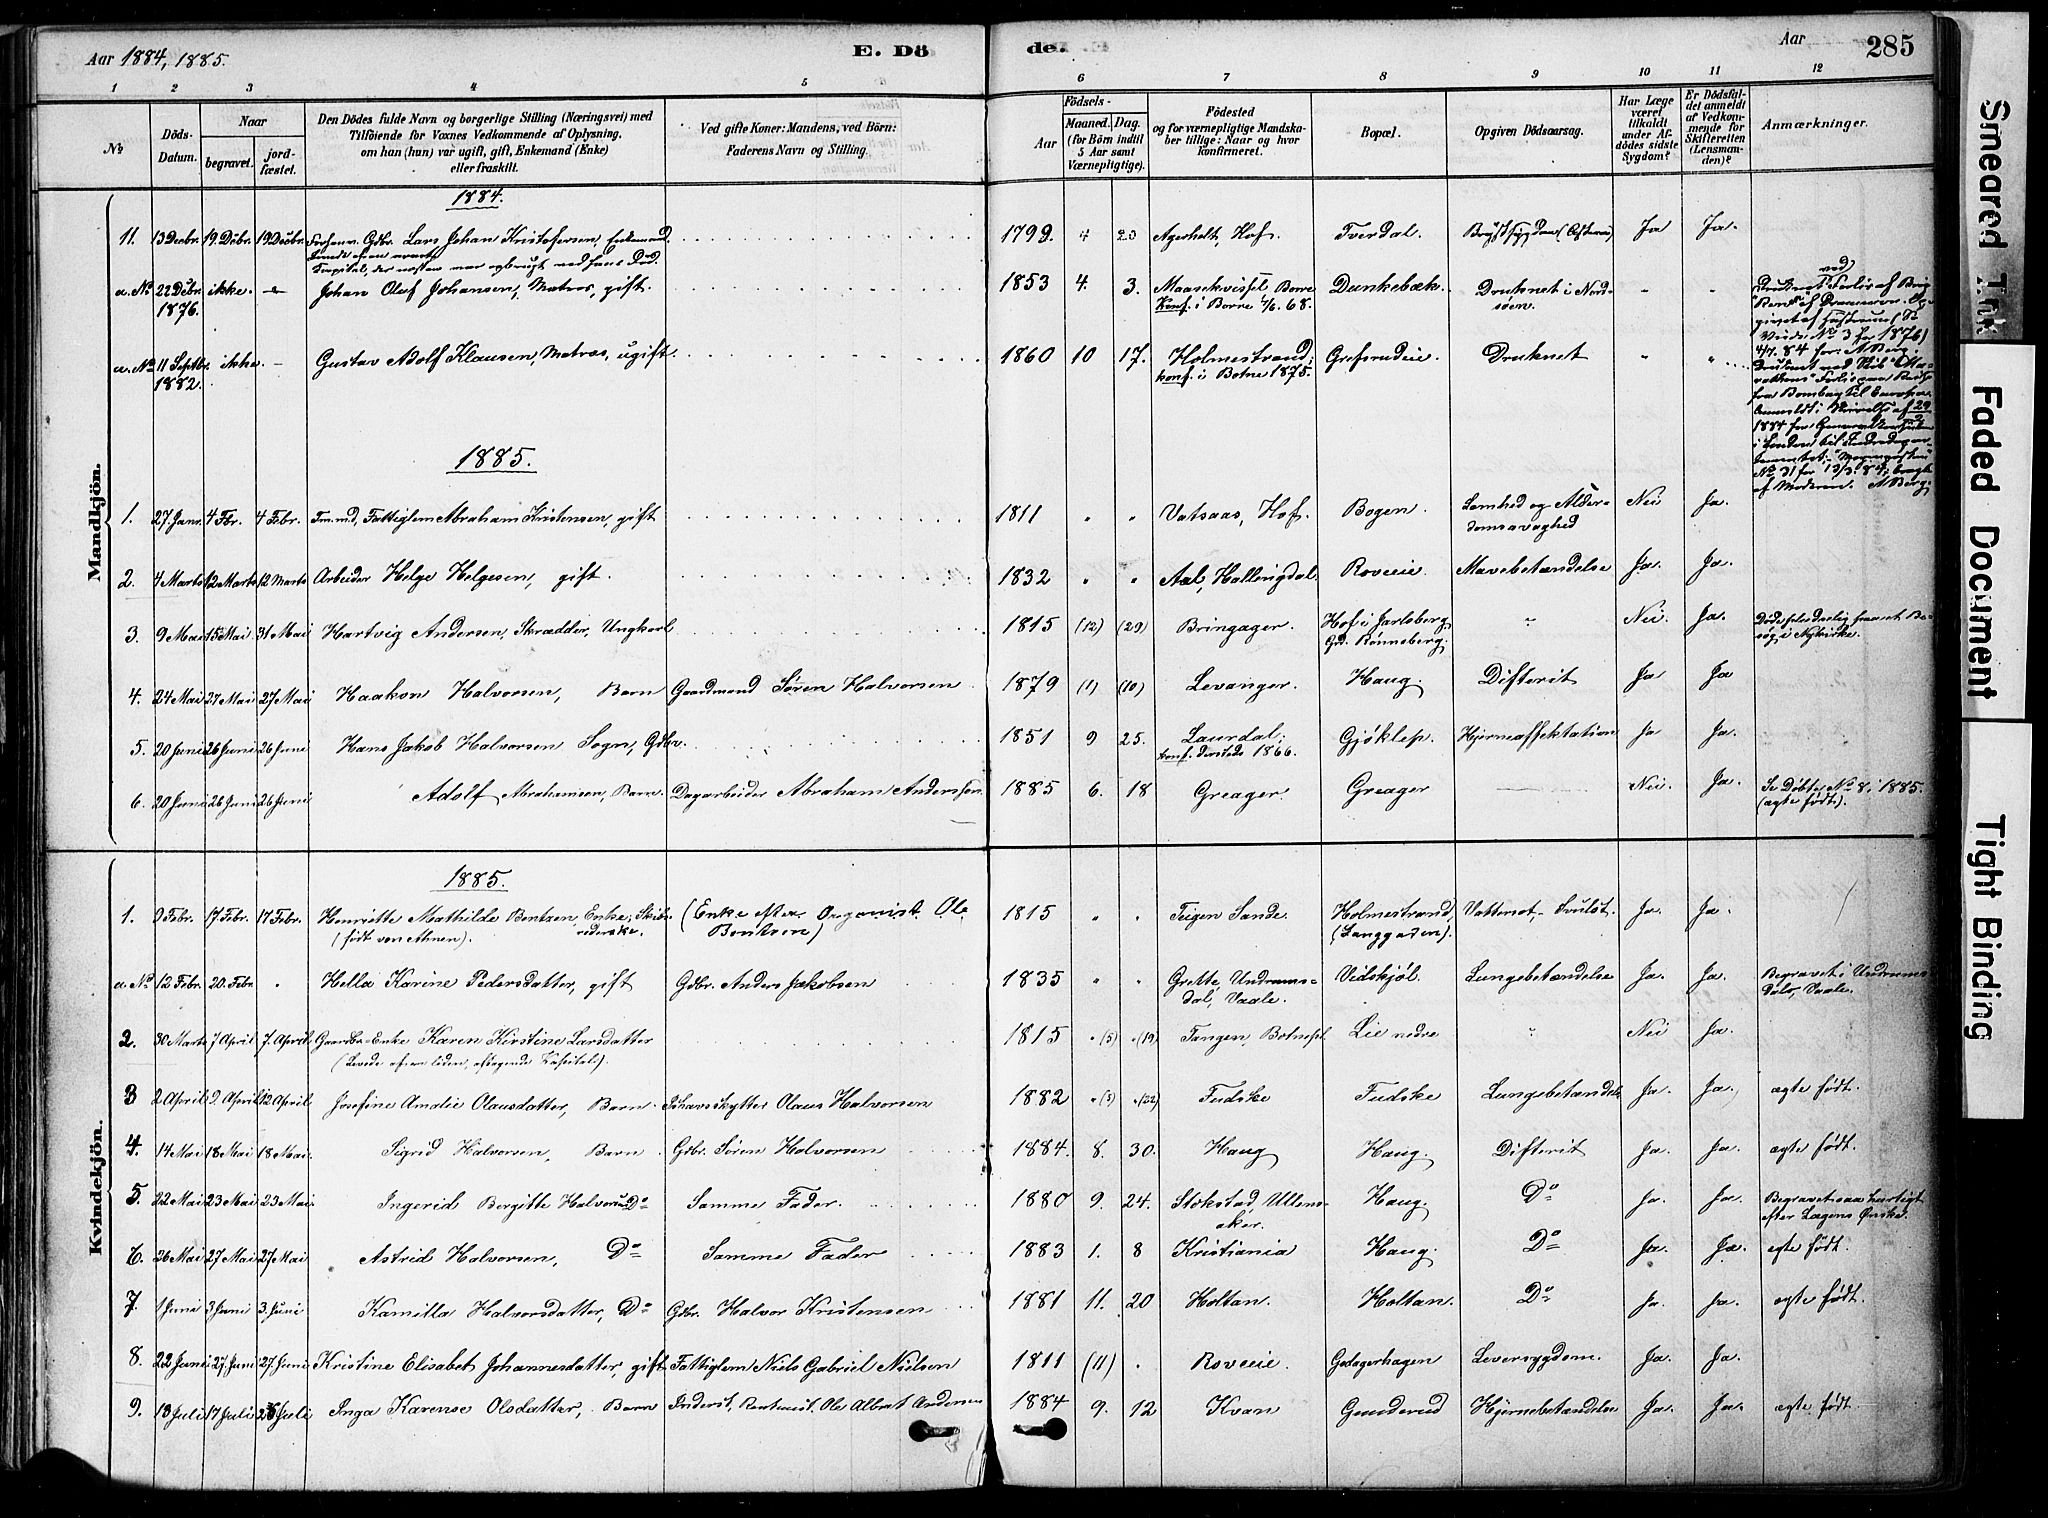 Aar 1884, 1885.
E. Dö
de.
Aar
285
1 2 3 4 5 6 7 8 9 10 11 12
No
Döds-Datum.
Naar
begravet.
jordfæstet.
Den Dödes fulde Navn og borgerlige Stilling (Næringsvei) med
Tilföiende for Voxnes Vedkommende af Oplysning,
om han (hun) var ugift, gift, Enkemand (Enke)
eller fraskilt.
Ved gifte Koner: Mandens, ved Börn:
Faderens Navn og Stilling.
Födsels-
Aar
Maaned.
Dag.
(for Börn indtil
5 Aar samt
Værnepligtige).
Födested
og for værnepligtige Mandska-
ber tillige: Naar og hvor
konfirmeret.
Bopæl.
Opgiven Dödsaarsag.
Har Læge
været
tilkaldt
under Af-
dödes sidste
Sygdom?
Er Dödsfal-
det anmeldt
af Vedkom-
mende for
Skifteretten
(Lensman-
den)?
Anmærkninger.
Mandkjön.
1884.
11. 13 Decbr. 19. Decbr. 19. Decbr. Forhenv. Gdbr. Lars Johan Kristofersen, Enkemand. 1799 4 20 Agerholt, Hof. Tverdal. Brystsygdom Ja Ja.
Kapital, der næsten var opbrugt ved hans Död.
u. No 22 Decbr. 1876. ikke. - Johan Oluf Johansen, Matros, gift. 1853 4. 3. Borre Dunkebæk. Druknet i Nordsöen.
Konf. i Borre 68.
u. No 11 Septbr. 1882. ikke - Gustav Adolf Klausen, Matros, ugift. 1860 10 17. Holmestrand; Grefsrudeie. Druknet
konf. i Botne 1875.
1885.
1. 27 Janr. 4 Febr. 4 Febr. Fattiglem Abraham Kristensen, gift 1811 " " Vatsaas, Hof. Bogen. Lamhed og Alder- Nei Ja.
domssvaghed
2. 4 Marts 12 Marts 12 Marts Arbeider Helge Helgesen, gift. 1832 " " Aal, Hallingdal. Roveeie. Mavebetændelse Ja. Ja.
3. 9 Mai 15 Mai 31 Mai Hartvig Andersen, Skrædder, Ungkarl 1815 (12) (29) Bringager. Hof i Jarlsberg " Nei. Ja.
Gd. Rönneberg.
Döde pludselig paa et Be-
søg i Nykirke.
4. 24 Mai 27 Mai 27 Mai Haakon Halvorsen, Barn Gaardmand Søren Halvorsen 1879 (1) (10) Levanger. Haug. Difterit Ja Ja
5. 20 Juni 26 Juni 26 Juni Hans Jakob Halvorsen Sogn, Gdbr. 1851 9 25. Laurdal; Gjøklep. Hjerneaffektation Ja Ja.
konf. dersteds 1866.
6. 20 Juni 26 Juni 26 Juni Adolf Abrahamsen, Barn. Dagarbeider Abraham Andersen. 1885 6. 18 Greager. Greager Nei. Ja. Se Døbte No 8, 1885.
(ægte født).
Kvindekjön.
1885.
1. 9 Febr. 17 Febr. 17 Febr. Henriette Mathilde Bentzen Enke, Skibs-
rederske. (født von Ahnen). (Enke efter Organist Ole
Bentzen) 1815 " " Teigen Sande. Holmestrand, (Langgaden). Vattersot, - Svulst. Ja. Ja.
u. No 12 Febr. 20 Febr. " Hella Karine Pedersdatter, gift Gdbr. Anders Jakobsen 1835 " " Grette, Undrums-
dal, Vaale. Vidskjøl. Lungebetændelse Ja. Ja. Begravet i Undrums-
dals, Vaale.
2. 30 Marts 7 April 7. April. Gaardbr.-Enke Karen Kirstine Larsdatter 1815 "(5) "(19) Tangen, Botnespl. Lie nedre " Nei Ja.
(Levede af en liden, aftagende Kapital).
3 2 April 9. April 12 April Josefine Amalie Olausdatter, Barn. Ishavsskytter Olaus Halvorsen 1882 "(3) "(22) Fudske Fudske Lungebetændelse Ja. Ja. ægte født.
4. 14 Mai 18 Mai 18 Mai. Sigrid Halvorsen, Barn. Gdbr. Søren Halvorsen 1884. 8. 30. Haug Haug. Difterit Ja. Ja. ægte født.
5 22 Mai 23 Mai 23 Mai. Ingerid Bergitte Halvorsen Do Samme Fader. 1880 9. 24. Stokstad, Ullens-
aker. Haug. Do Ja. Ja. Begravet saa hurtigt
efter Lægens Ønske.
6. 26 Mai 27 Mai 27 Mai Astrid Halvorsen, Do Samme Fader 1883 1. 8 Kristiania Haug. Do Ja. Ja. ægte født.
7. 1 Juni 3 Juni 3. Juni Kamilla Halvorsdatter, Do Gdbr. Halvor Kristensen 1881 11. 20 Holtan. Holtan. Do Ja. Ja. ægte født.
8. 22 Juni 27. Juni 27. Juni Kristine Elisabet Johannesdatter, gift Fattiglem Niels Gabriel Nilsen 1811 (11) " Roveeie. Gjedagerhagen Leversygdom. Ja. Ja.
9. 13 Juli 17 Juli 26 Juli Inga Karense Olsdatter, Barn Inderst, Ole Albrat Andersen 1884 9. 12 Kvan Gunderud Hjernebetændelse Ja. Ja. ægte født
Smeared Ink
Faded Document
Tight Binding